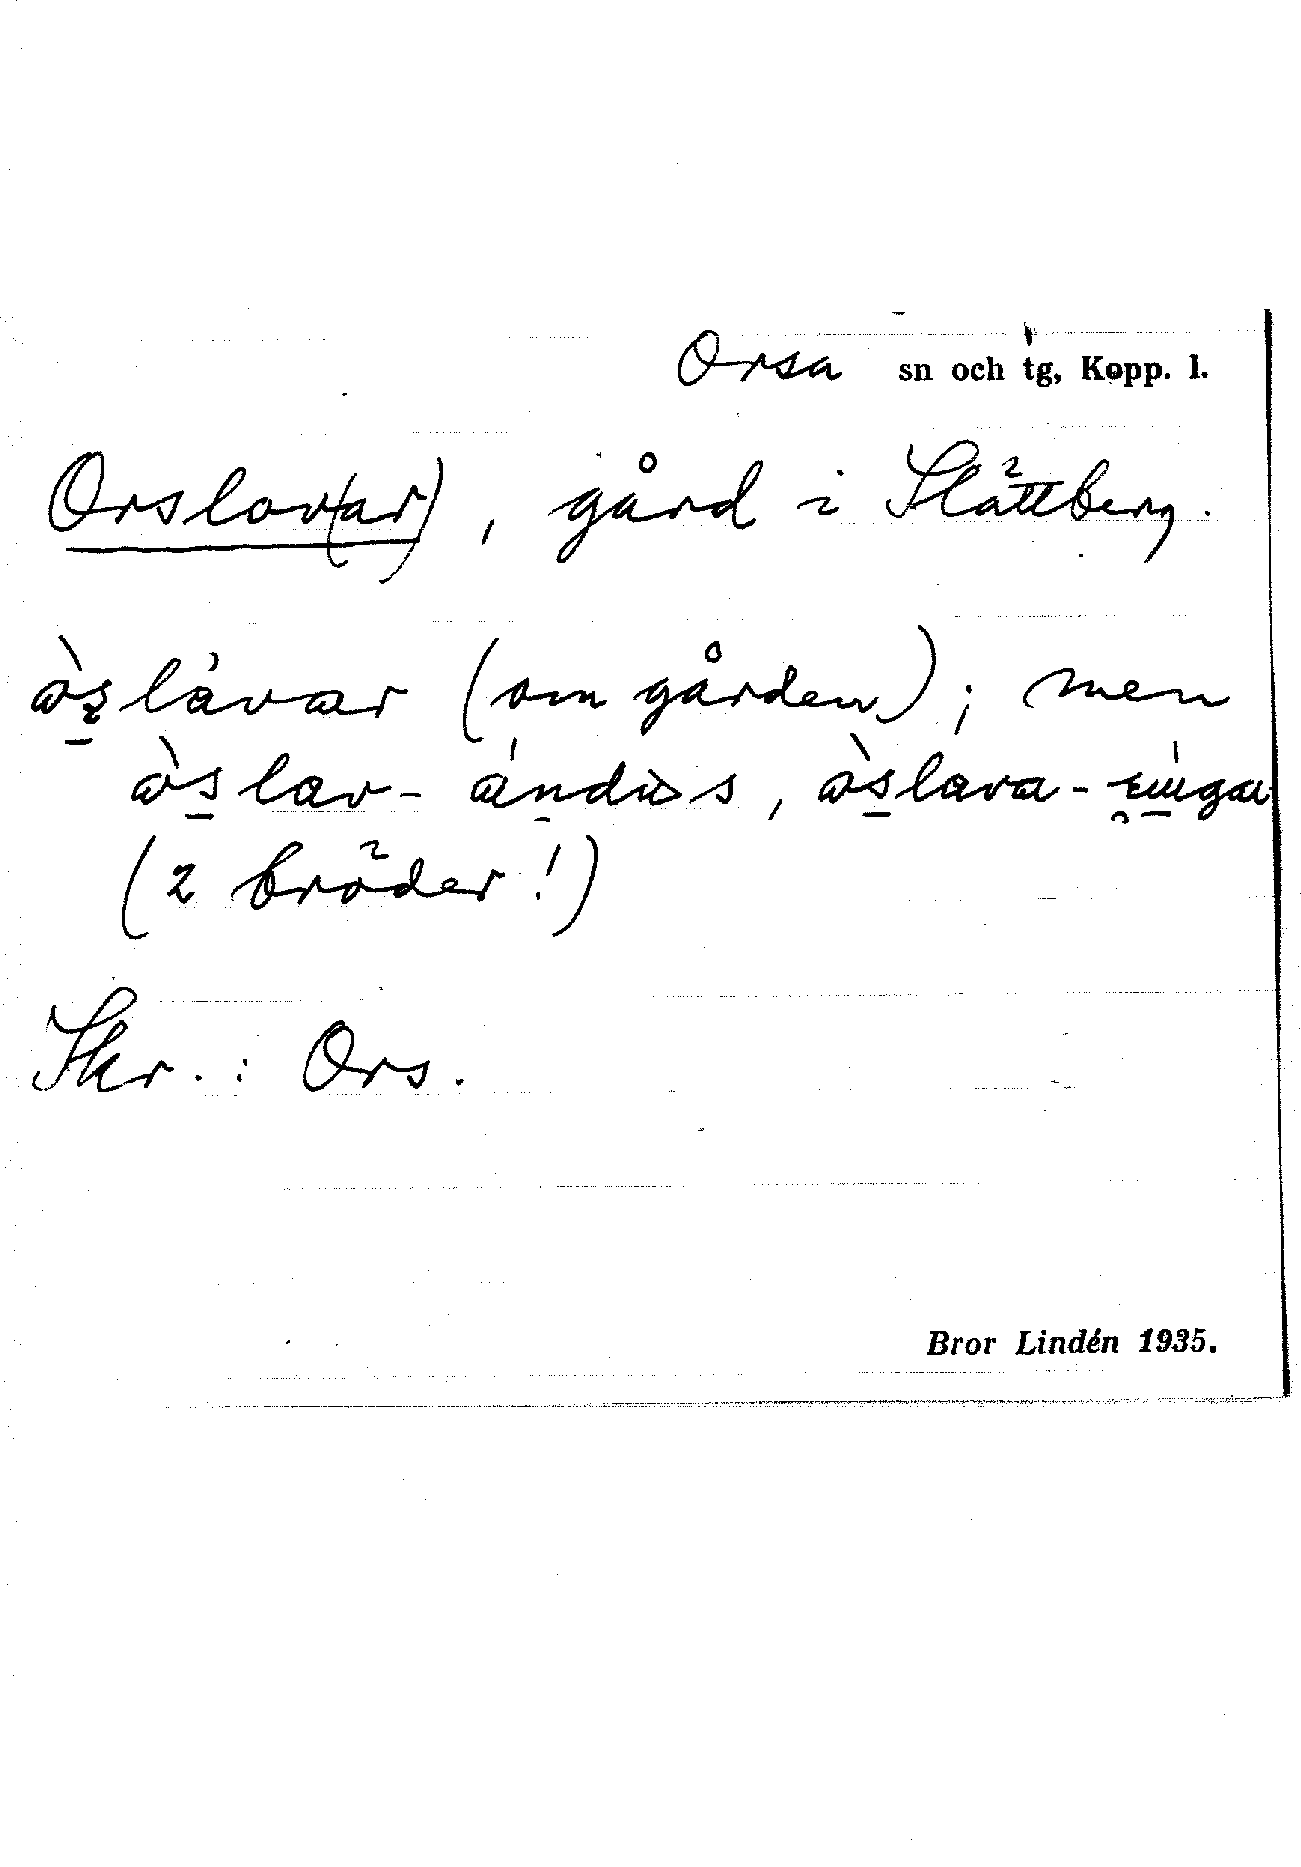 Orsa sn och tg, Kopp. l.
Orslov(ar), gård i Slättberg.
òslåvar (om gården); men
òslav- ándas, òslava-
(2 bröder!)
Skr.: Ors.
Bror Lindén 1935.